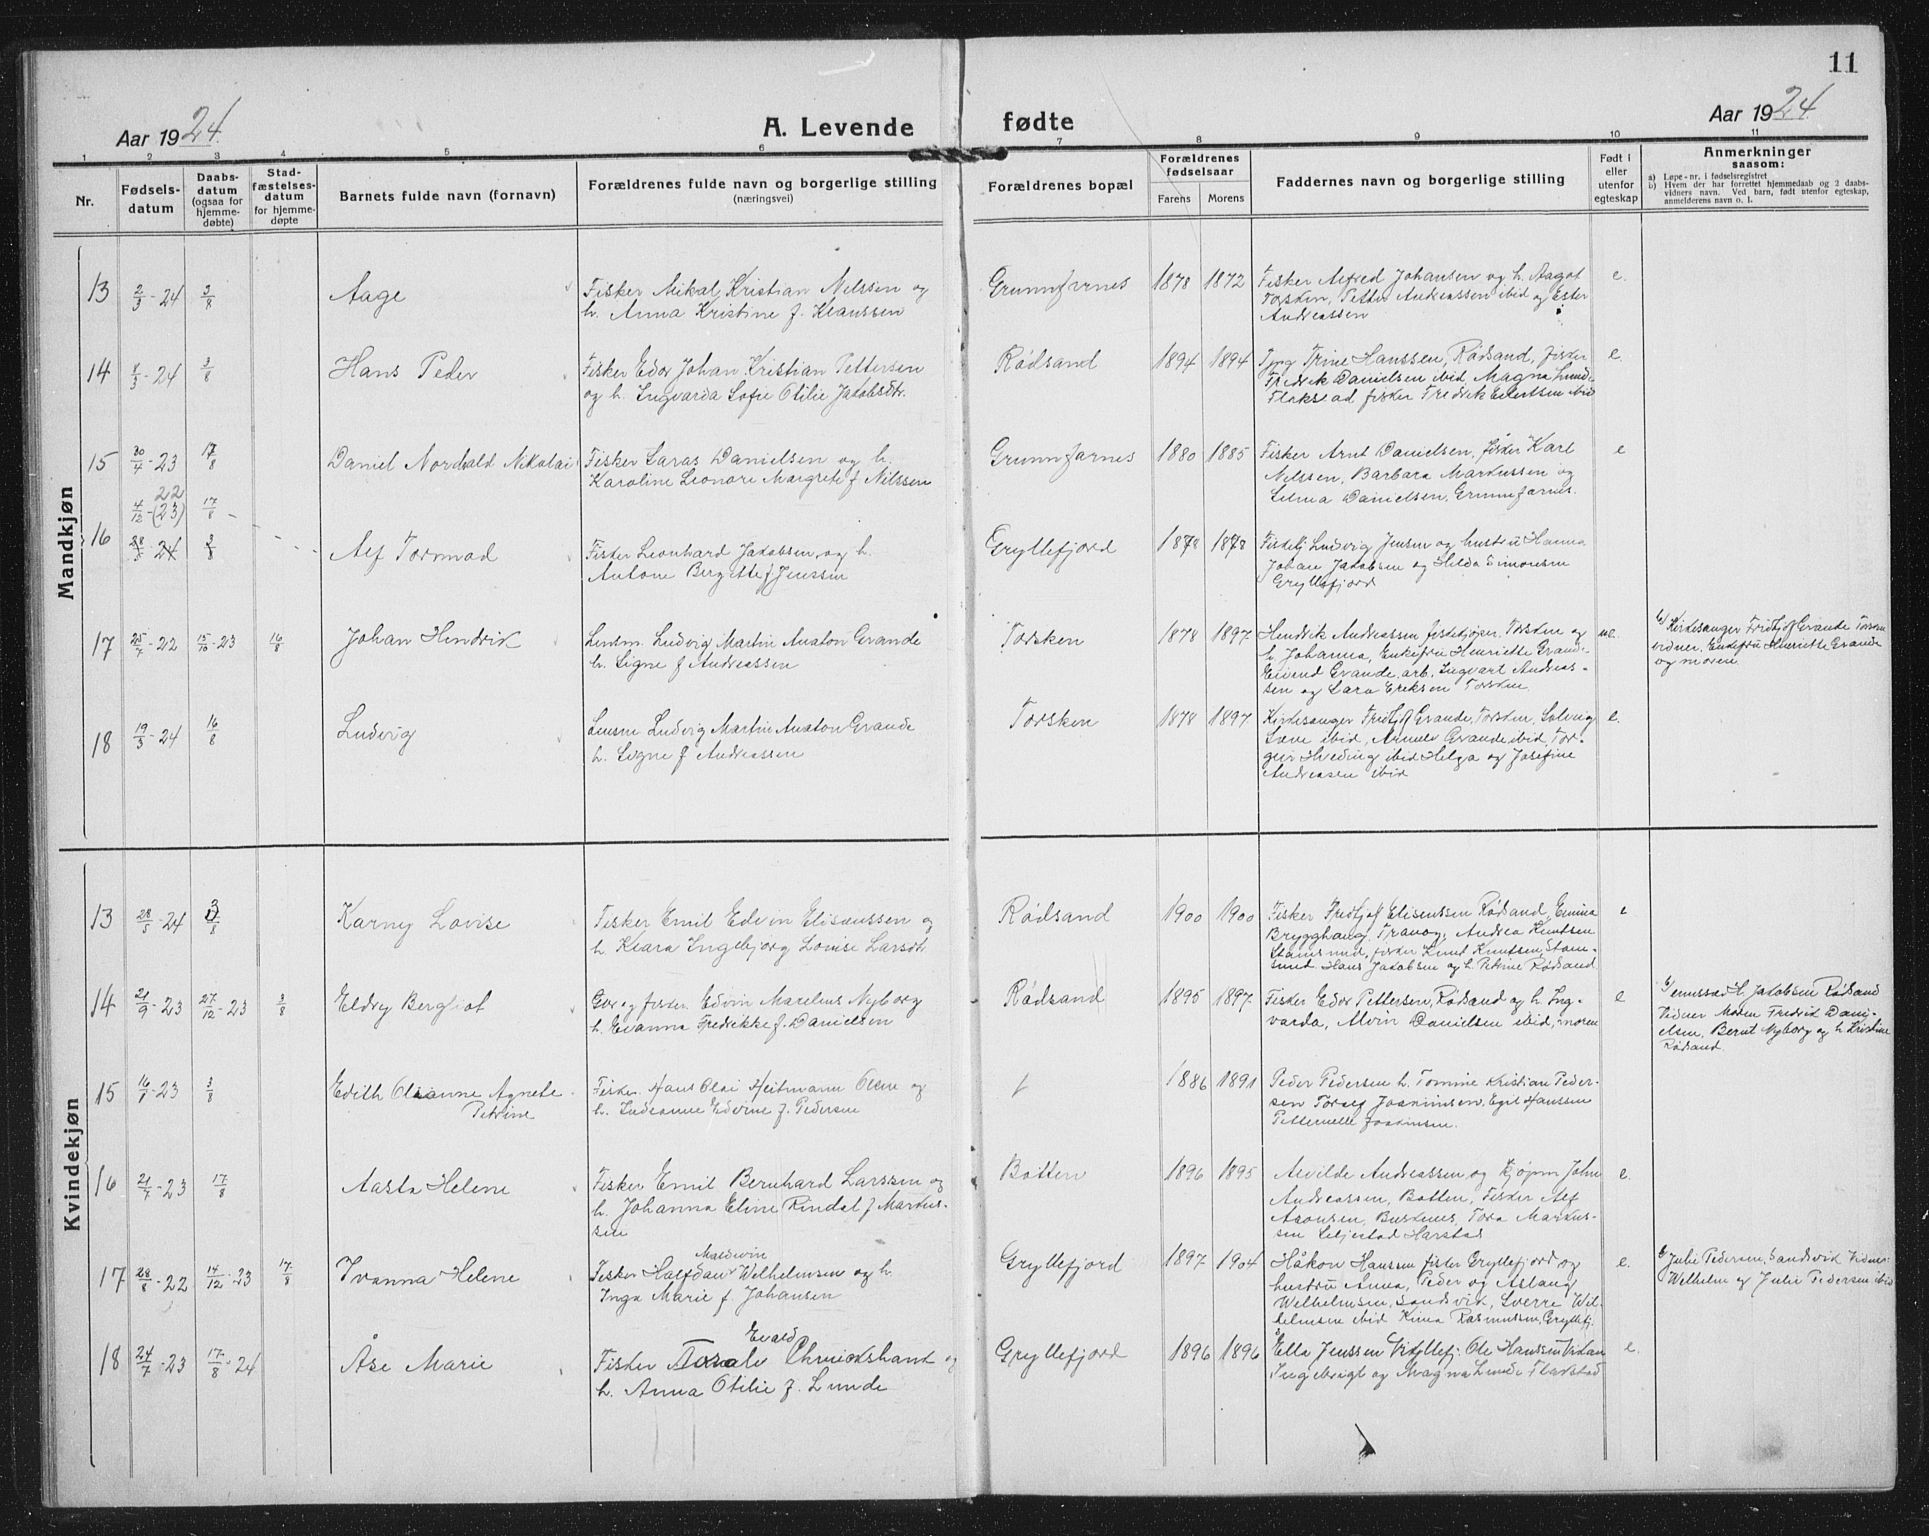 11
Aar 1924.
A. Levende fødte
Aar 1924.
1 2 3 4 5 6 7 8 9 10 11
Nr.
Fødsels-
datum
Daabs-
datum
(ogsaa for
hjemme-
døbte)
Stad-
fæstelses-
datum
for hjemme-
døpte
Barnets fulde navn (fornavn)
Forældrenes fulde navn og borgerlige stilling
(næringsvei)
Forældrenes bopæl
Forældrenes
fødselsaar
Farens Morens
Faddernes navn og borgerlige stilling
Født i
eller
utenfor
egteskap
Anmerkninger
saasom:
a) Løpe-nr. i fødselsregistret
b) Hvem der har forrettet hjemmedaab og 2 daabs-
vidners navn. Ved barn, født utenfor egteskap,
anmelderens navn o. l.
Mandkjøn
13 2/3-24 3/8 Aage
Fisker Mikal Kristian Nilssen og
h. Anna Kristine f. Klaussen
Grunnfarnes 1878 1872
Fisker Alfred Johansen og h. Aagot
Torsken, Petter Andreassen ibid og Ester
Andreassen
e.
14 3/8 Hans Peder
Fisker Edor Johan Kristian Pettersen
og h. Ingvarda Sofie Otilie Jakobsdtr.
Rødsand 1894 1894
Trine Hanssen, Rødsand, fisker
Fredrik Danielsen ibid, Magna Lund
Flakstad fisker Fredrik Eilertsen ibid
e.
15 30/4-23 17/8 Daniel Nordvald Nikolai
Fisker Laras Danielsen og h.
Karoline Leonore Margrete f Nilssen
Grunnfarnes 1880 1885
Fisker Arnt Danielsen, fisker Karl
Nilssen, Barbara Markussen og
Selma Danielsen, Grunnfarnes.
e
16 4/12-22 (23) 17/8
3/8 Alf Tormod
Fisker Leonhard Jakobsen og h.
Antone Bergitte f Jenssen
Gryllefjord 1878 1878
Ludvig Jensen og hustru Hanna
Johan Jakobsen og Hilda Simonsen
Gryllefjord
17 25/4-22 15/10-23 16/8 Johan Hendrik
Lensm. Ludvig Martin Anaton Grande
h. Signe f Andreassen
Torsken 1878 1897
Hendrik Andreassen Torsken og
h. Johanna, Enkefru Henriette Grande
Eivend Grande, arb. Ingvart Andreas-
sen og Lara Eriksen Torsken.
ue.
b) Kirkesanger Fridtjof Grande Torsken
vidner, Enkefru Henriette Grande
og moren
18 19/3-24 16/8 Ludvig
Lensm Ludvig Martin Anaton Grande
h. Signe f Andreassen
Torsken 1878 1897
Kirkesanger Fridtjof Grande, Torsken, Solveig
ibid, Grande ibid, Tor-
geir Hveding ibid Helga og Josefine
Andreasen ibid
e.
Kvindekjøn
13 28/5-24 3/8 Karny Lovise
Fisker Emil Edvin Elisæussen og
h. Klara Ingebjorg Lovise Larsdtr
Rødsand 1900 1900
Fisker Fridtjof Elisæussen Rødsand, Emma
Brygghaug, Tranøy, Andrea Knutsen
Stamsund, fisker Knut Knutsen, Stam-
sund. Hans Jakobsen og h. Petrine Rødsand
e
14 21/9-23 27/12-23 3/8 Eldry Bergliot
Gbr og fisker Edvin Marelius Nyborg
h. Evanna Fredrikke f. Danielsen
Rødsand 1895 1897
Fisker Edor Pettersen, Rødsand og h. Ing-
varda, Alvin Danielsen ibid, moren
e
Jakobsen Rødsand
Vidner Moren Fredrik Dani-
elsen, Bernt Nyborg og h Kristine
Rødsand.
15 3/8 Edith Olianne Agnete
Petrine
Fisker Hans Olai Heitmann Olsen og
h. Ludianne Edvine f. Pedersen
1886 1891
Peder Pedersen h. Tomine Kristian Peder-
sen Joakimsen, Egil Hanssen
Petternelle Joakimsen.
16 21/7-23 17/8 Aasta Helene
Fisker Emil Bernhard Larssen og
h. Johanna Eline Rindal f Markus-
sen
Botten 1896 1895
Alvilde Andreassen og John
Andreassen, Botten, Fisker Alf
Aronsen, Buskenes, Tora Markus-
sen Seljestad Harstad
e.
17 28/8-22 14/12-23 17/8 Ivanna Helene
Maldwin
Fisker Halfdan Welhelmsen og h.
Inga Marie f. Johansen
Gryllefjord 1897 1904
Håkon Hansen fisker Gryllefjord og
hustru Anna, Peder og Aslaug
Wilhelmsen, Sandsvik, Sverre Wil-
helmsen ibid Rasmussen, Gryllefj.
e.
b) Julie Pedersen, Sandsvik Vidner:
Welhelm og Julie Pedersen ibid
18 24/7-23 17/8-24 Åse Marie
Evald
Fisker og
h. Anna Otilie f. Lunde
Gryllefjord 1896 1896
Ella Jenssen Gryllefj. Ole Hanssen
Ingebrigt og Magna Lunde Flakstad
e.